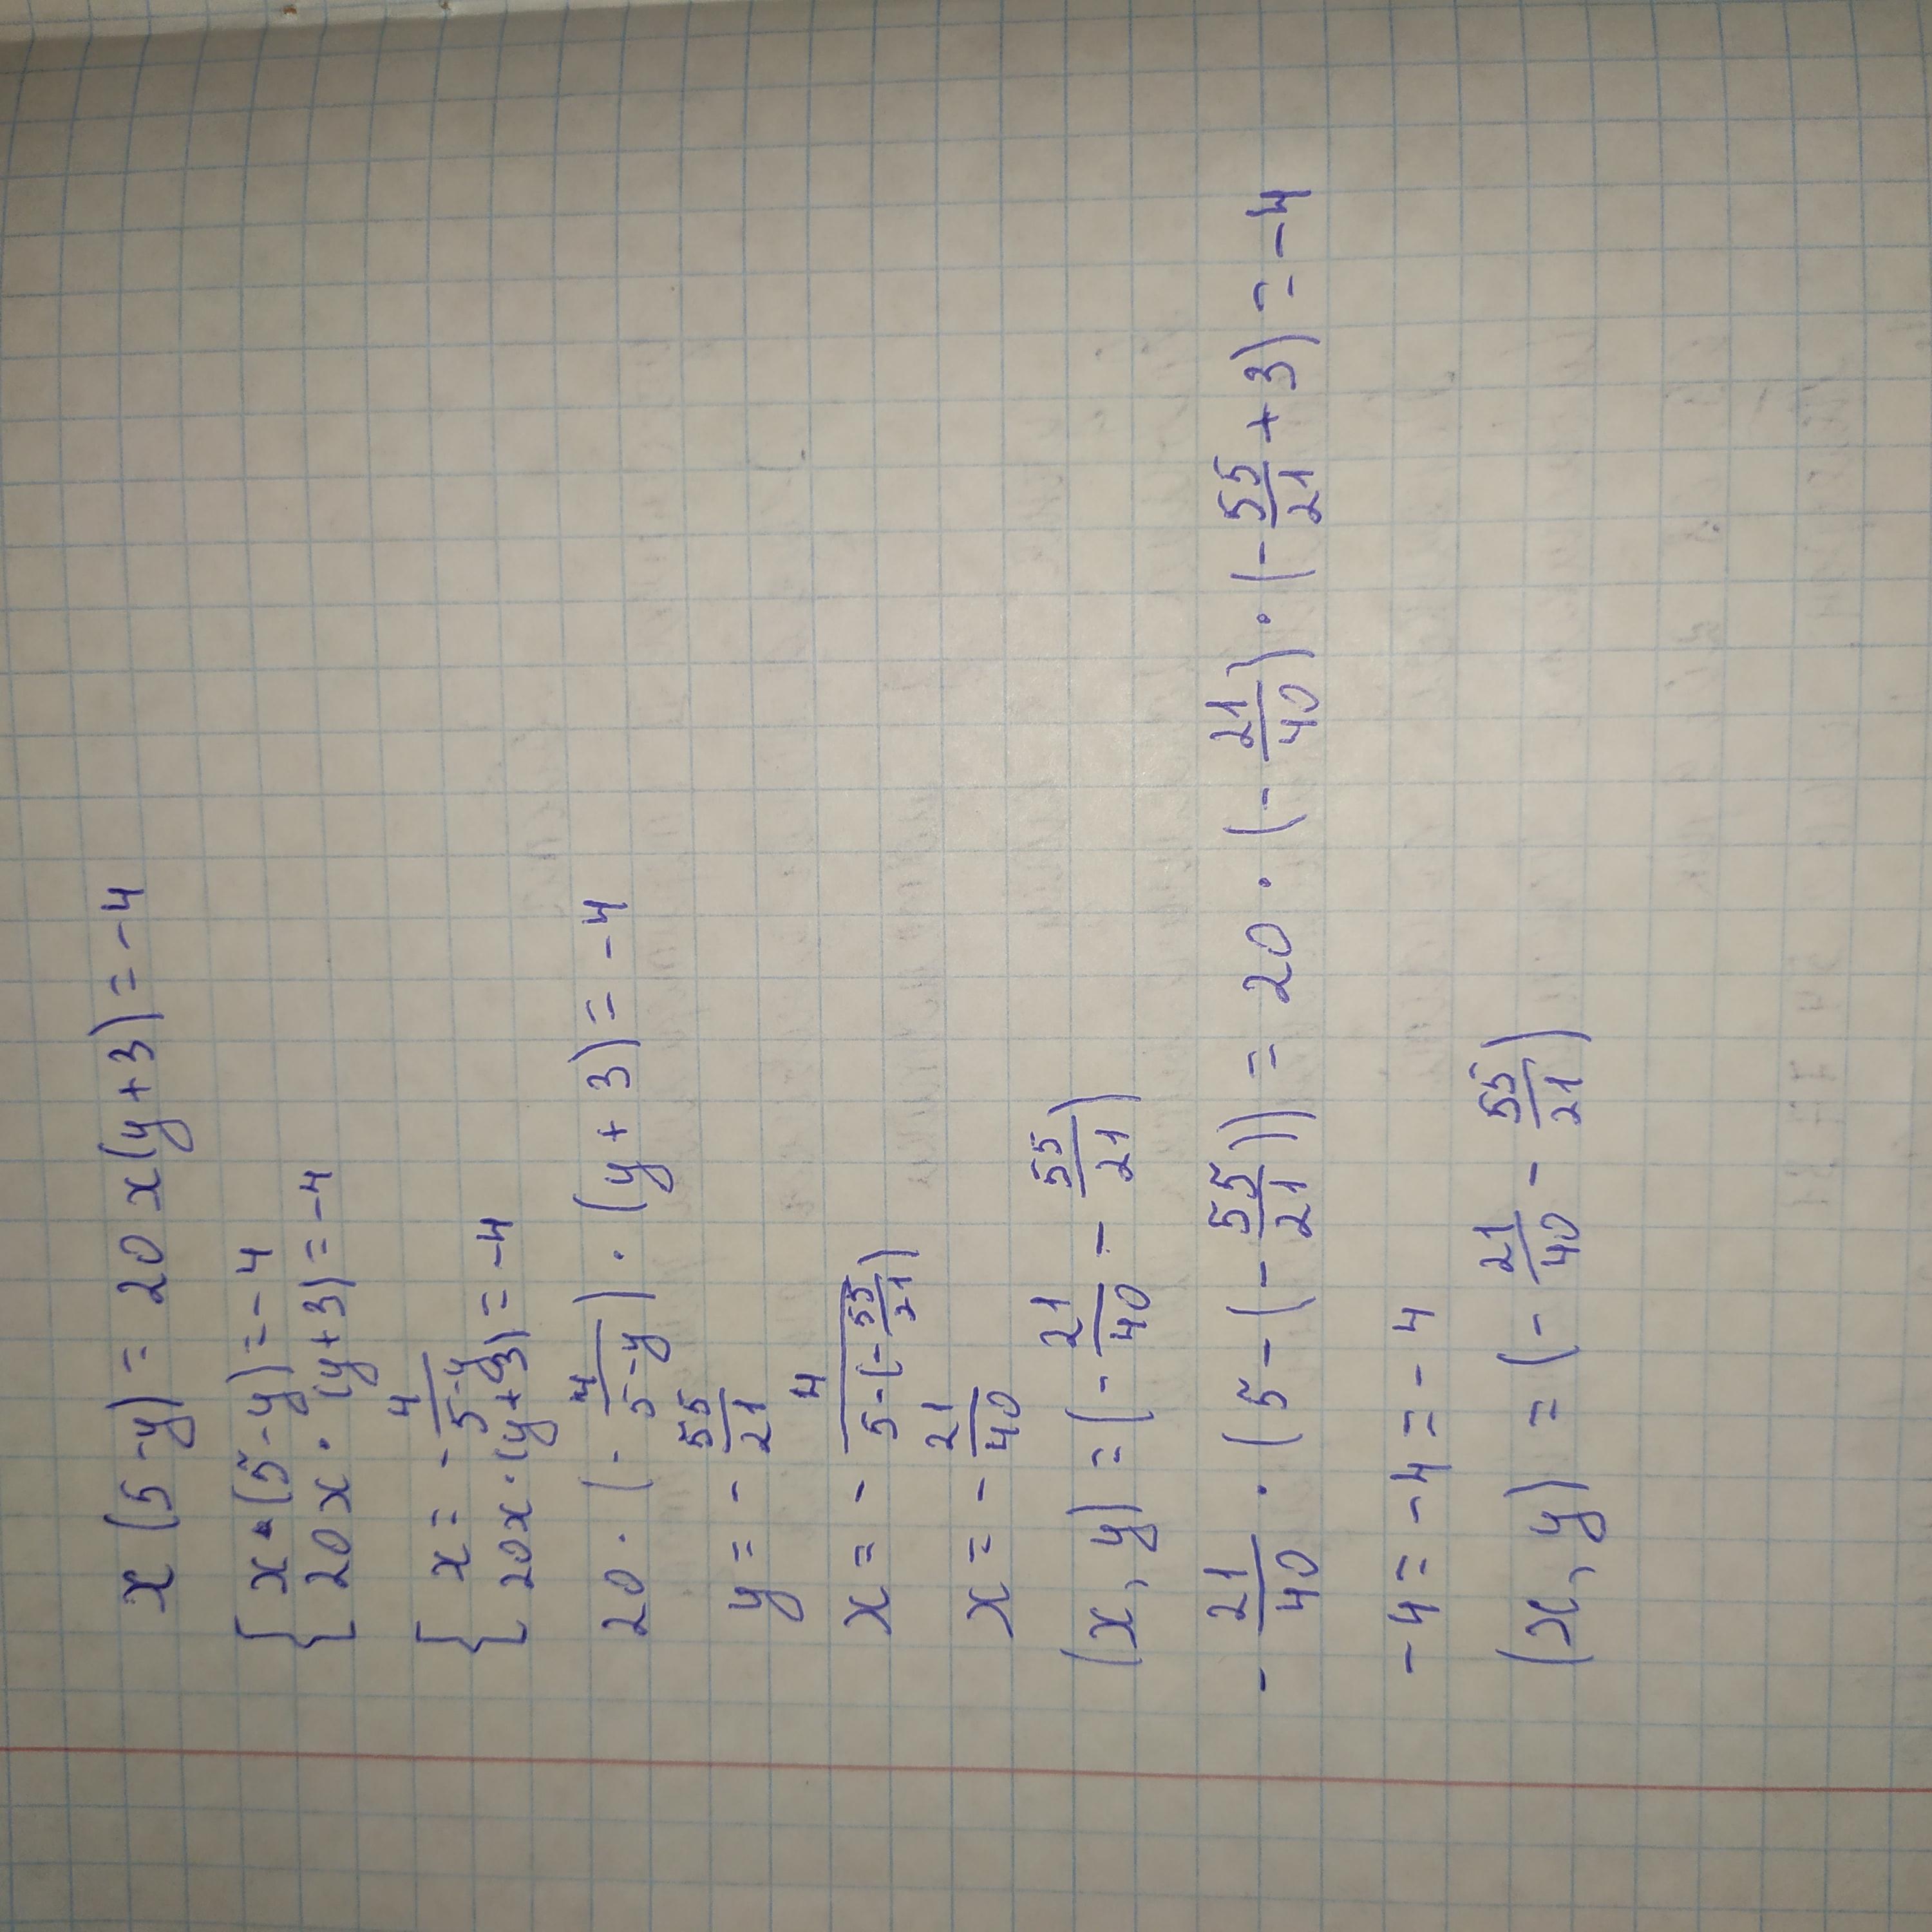 x(5-y) = 20x(y+3) = -4
{ x·(5-y) = -4
20x·(y+3) = -4
{ x = -4/(5-y)
20x·(y+3) = -4
20·(-4/(5-y))·(y+3) = -4
y = -55/21
x = -4/(5-(-55/21))
x = -21/40
(x, y) = (-21/40 - 55/21)
-21/40·(5-(-55/21)) = 20·(-21/40)·(-55/21+3) = -4
-4 = -4 = -4
(x, y) = (-21/40 - 55/21)